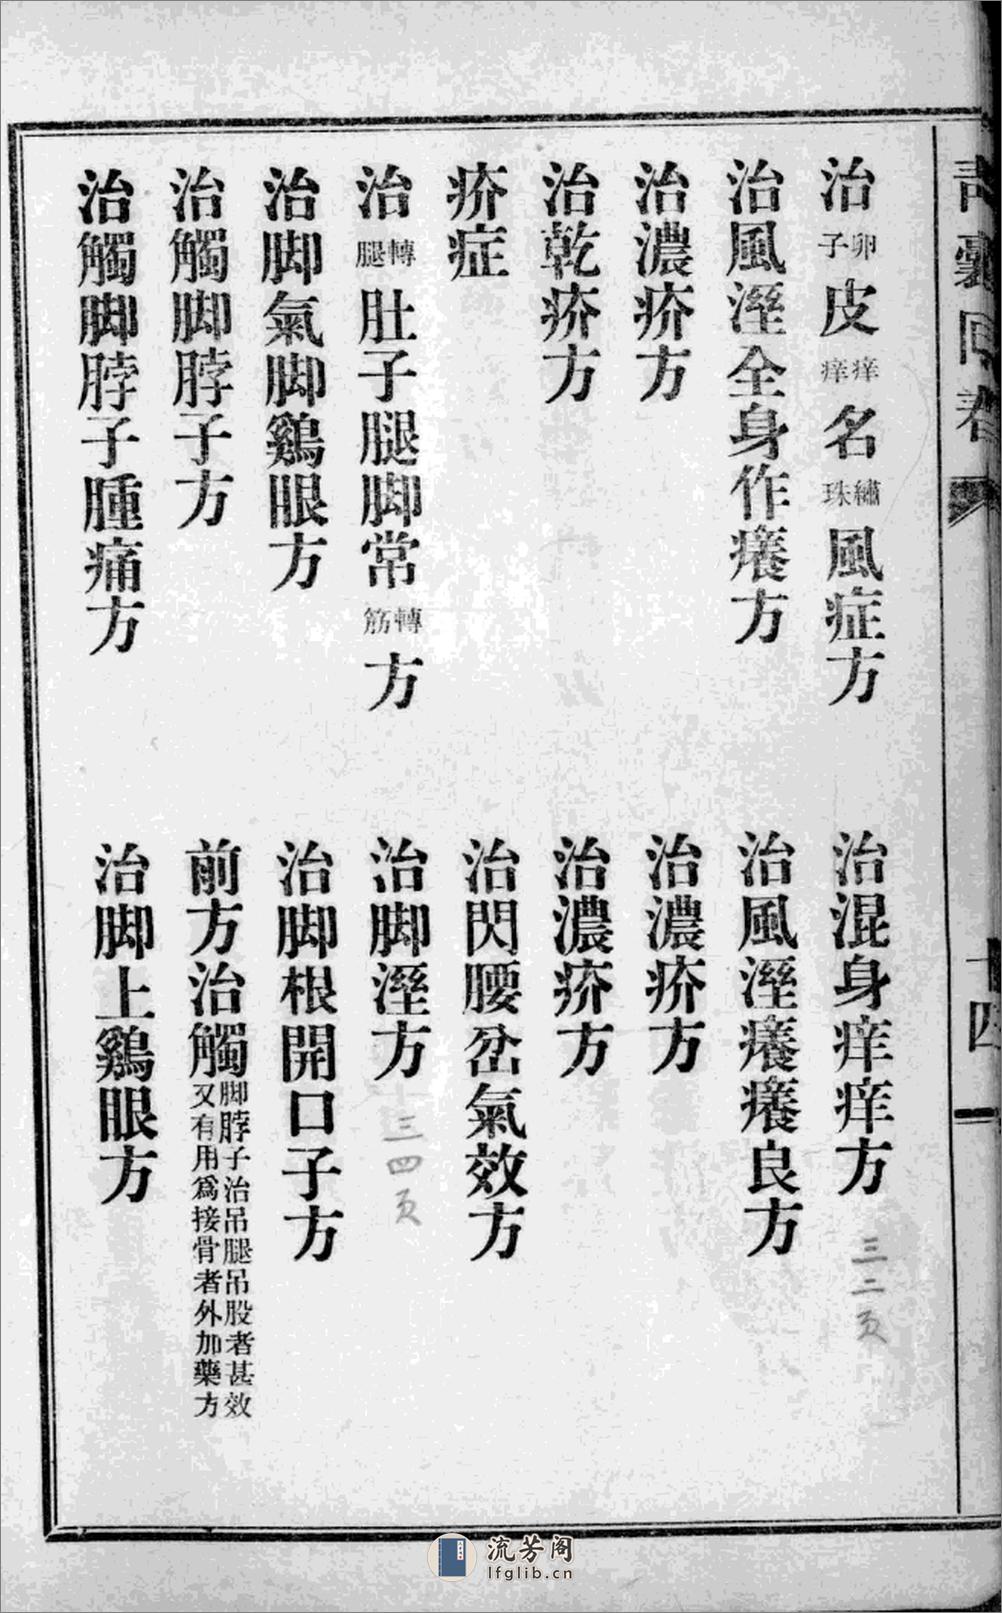 青囊回春
十四
治卵子皮痒痒名繡珠風症方
治混身痒痒方 三二页
治風溼全身作癢方
治風溼癢癢良方
治濃疥方
治濃疥方
治乾疥方
治濃疥方
疥症
治閃腰岔氣效方
治轉腿肚子腿脚常轉筋方
治脚溼方 三四页
治脚氣脚鷄眼方
治脚根開口子方
治觸脚脖子方
前方治觸脚脖子治吊腿吊股者甚效又有用爲接骨者外加藥方
治觸脚脖子腫痛方
治脚上鷄眼方
流芳阁
lfglib.cn